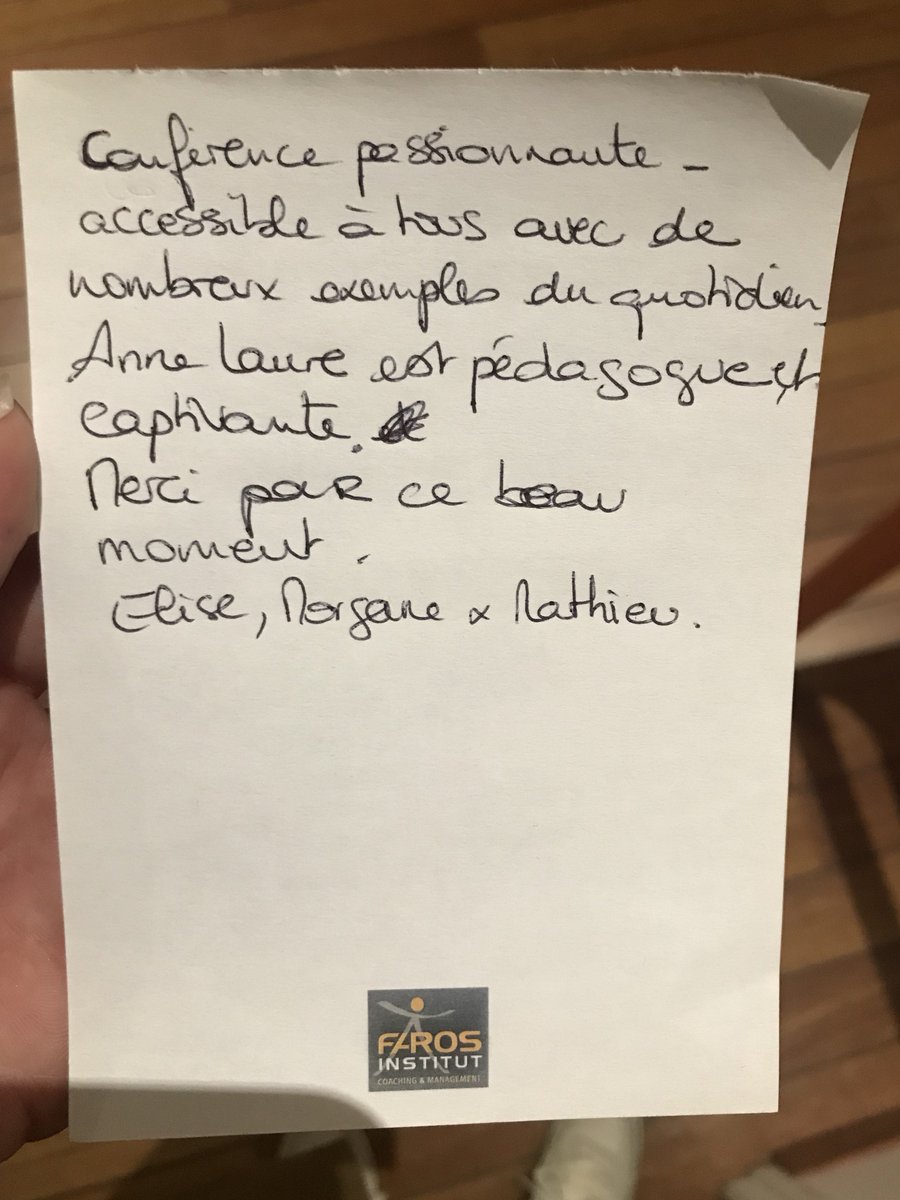 Conférence passionnante -
accessible à tous avec de
nombreux exemples du quotidien.
Anne Laure est pédagogue et
captivante.
Merci pour ce beau
moment.
Elise, Morgane & Mathieu.
FAROS
INSTITUT
COACHING & MANAGEMENT